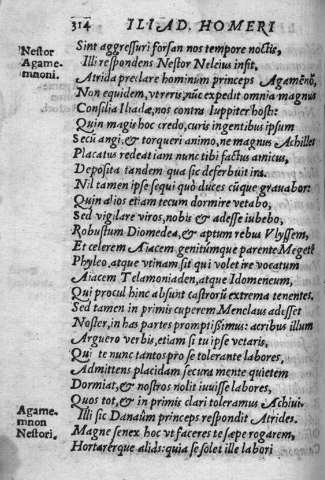 314 ILIAD. HOMERI
Nestor
Agame-
mnoni.
Sint aggressuri forsan nos tempore noctis,
Illi respendens Nestor Neleius infit,
Atrida preclare hominũm princeps Agamẽnõ,
Non equidem, vtrreris, nũc expedit omnia magnus
Consilia Iliadæ, nos contra Iuppiter host:
Quin magis hoc credo, curis ingentibus ipsum
Secũ angi, & torqueri animo, ne magnus Achilles
Placatus redeat iam nunc tibi factus amicus,
Deposita tandem qua sic deferbuit ira.
Nil tamen ipse sequi quò duces cũque grauabor:
Quin alios etiam tecum dormire vetabo,
Sed vigilare viros, nobis & adesse iubebo,
Robustum Diomedea, & aptum rebus Vlyssem,
Et celerem Aiacem, genitúmque parente Megetẽ
Phyleo, atque vtinam sit qui volet ire vocatum
Aiacem Telamoniaden, atque Idomeneum,
Qui procul hinc absunt castrorũ extrema tenentes.
Sed tamen in primis cuperem Menelaus adesset
Noster, in has partes promptissimus: acribus illum
Arguero verbis, etiam si tu ipse vetaris,
Qui te nunc tantos pro se tolerante labores,
Admittens placidam secura mente quietem
Dormiat, & nostros nolit iuuisse labores,
Quos tot, & in primis clari toleramus Achiui.
Agame-
mnon
Nestori.
Illi sic Danaũm princeps respondit Atrides.
Magne senex hoc vt faceres te sæpe rogarem,
Hortarerque aliàs: quia se solet ille labori